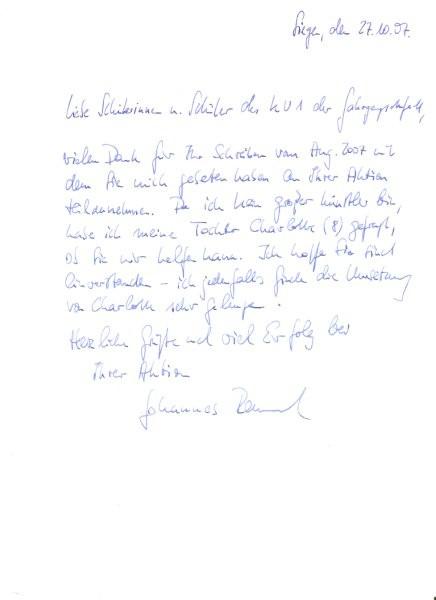 Siegen, den 27.10.07.
Liebe Schülerinnen u. Schüler des KU1 der Jahrgangsstufe
vielen Dank für Ihr Schreiben vom Aug. 2007 mit
dem Sie mich gebeten haben an Ihrer Aktion
teilzunehmen. Da ich kein großer Künstler bin,
habe ich meine Tochter Charlotte (8) gefragt,
ob sie mir helfen kann. Ich hoffe Sie sind
einverstanden - ich jedenfalls finde die Umsetzung
von Charlotte sehr gelungen.
Herzliche Grüße und viel Erfolg bei
Ihrer Aktion
Johannes